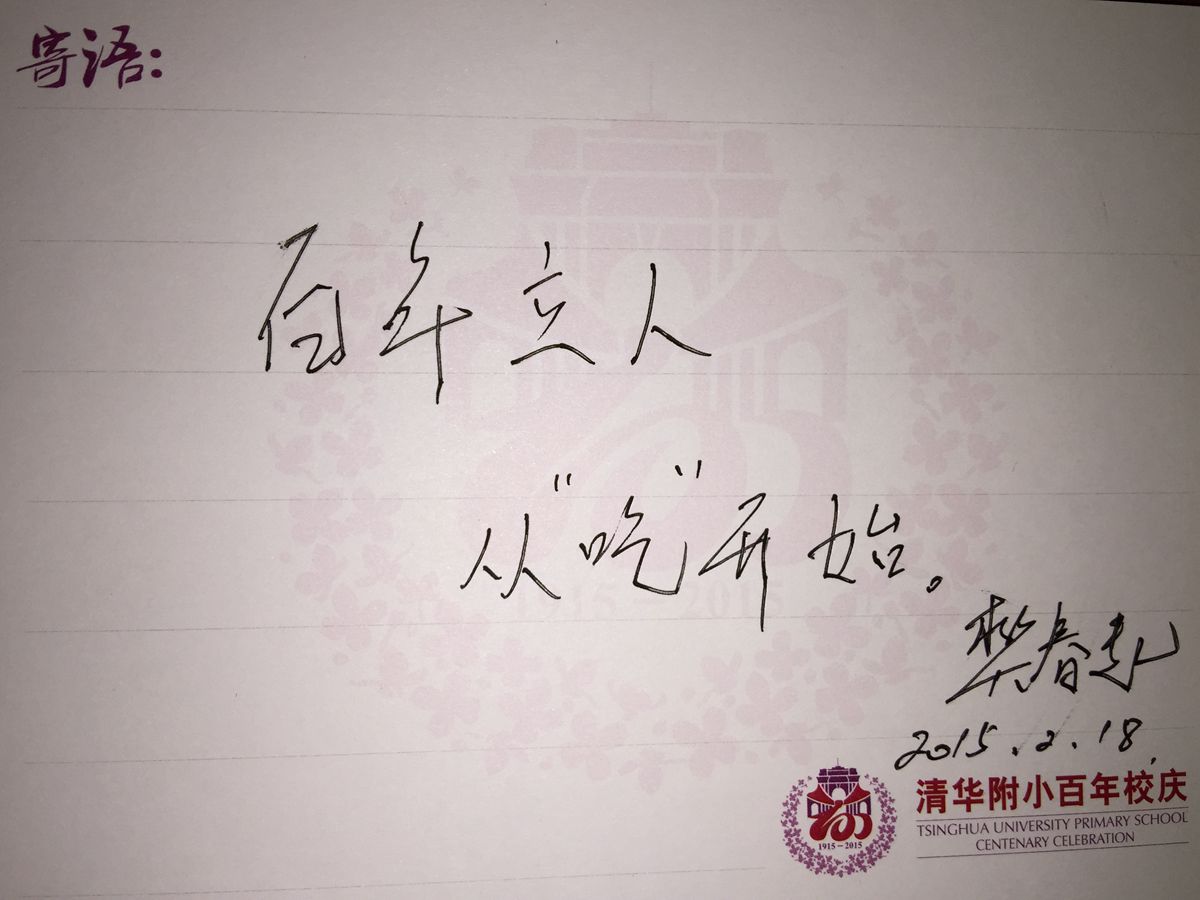 寄语:
百年立人
从"吃"开始。
樊春起
2015.2.18.
1915-2015
清华附小百年校庆
TSINGHUA UNIVERSITY PRIMARY SCHOOL
CENTENARY CELEBRATION
1915-2015